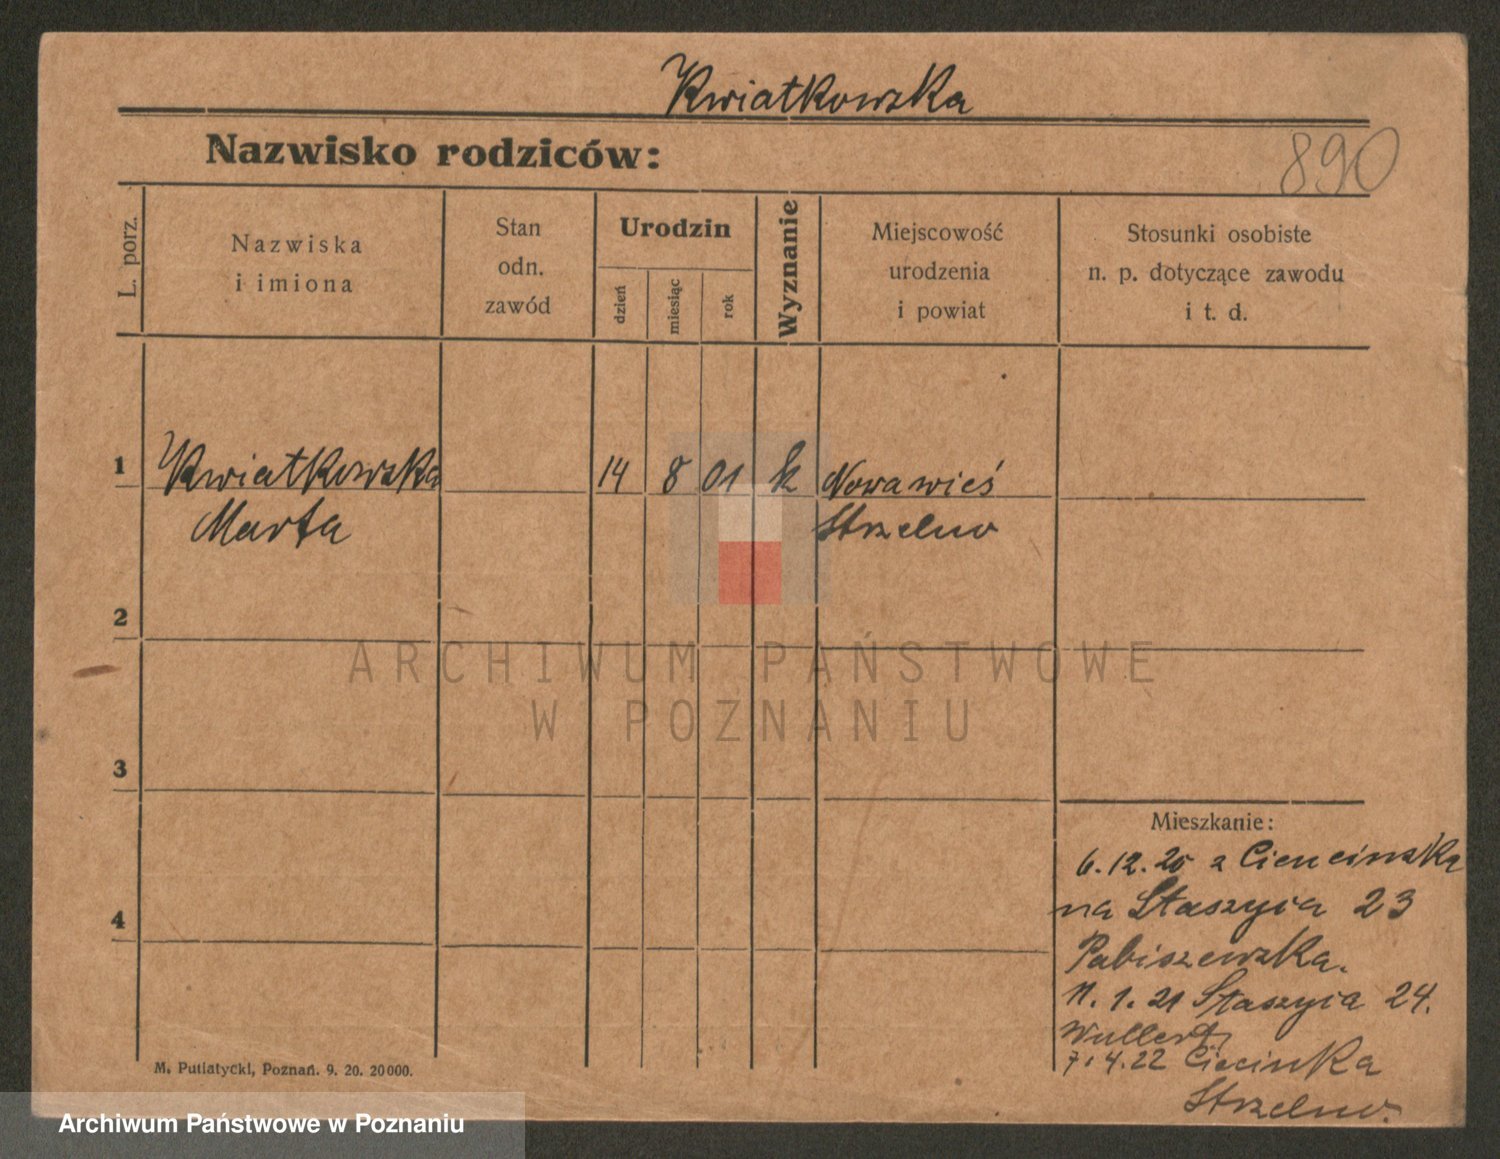 Kwiatkowska
Nazwisko rodziców:
890
L. porz.
Nazwiska
i imiona
Stan
odn.
zawód
Urodzin
dzień
miesiąc
rok
Wyznanie
Miejscowość
urodzenia
i powiat
Stosunki osobiste
n. p. dotyczące zawodu
i t. d.
1 Kwiatkowska 14 8 01 k Nowawieś
Marta Strzelno
2
3
4
Mieszkanie:
6.12.20 z
na Staszyca 23
Pabiszewska.
11. 1. 21 Staszyca 24.
Wullert
7.4.22
Strzelno.
M. Putiatycki, Poznań. 9. 20. 20000.
ARCHIWUM PAŃSTWOWE
W POZNANIU
Archiwum Państwowe w Poznaniu